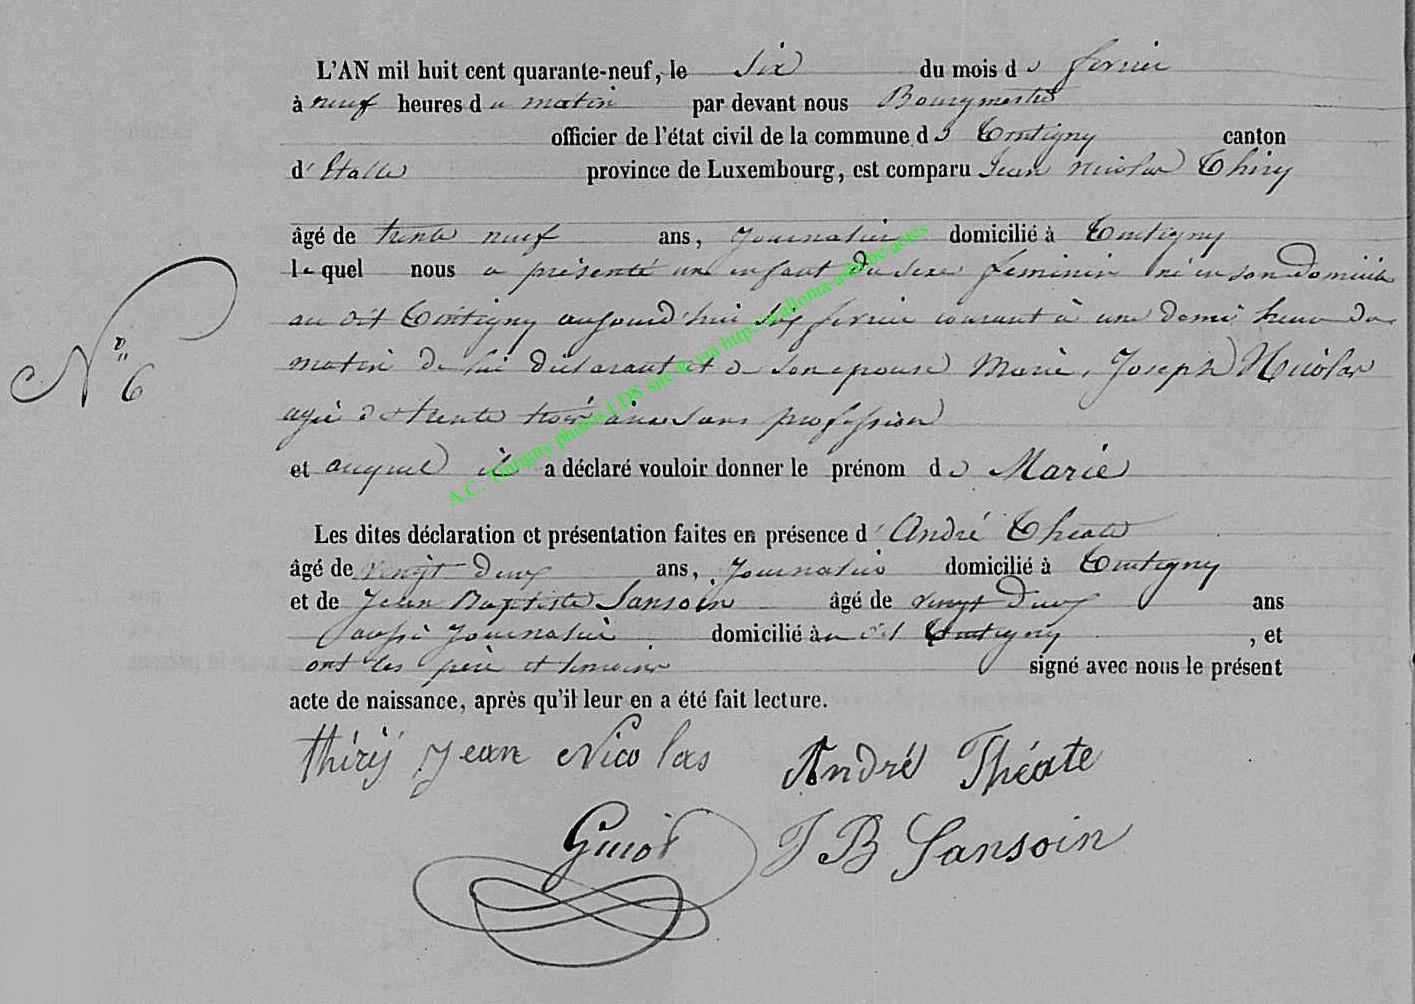 L'AN mil huit cent quarante-neuf, le six du mois de fevrier
à neuf heures du matin par devant nous Bourgmestre
officier de l'état civil de la commune de Tintigny canton
d'Etalle province de Luxembourg, est comparu Jean nicolas Thiry
âgé de trente neuf ans, journalier domicilié à Tintigny
lequel nous a présenté un enfant du sexe feminin né en son domicile
au dit Tintigny aujourd'hui six fevrier courant à une demi heure du
matin de lui déclarant et de son epouse Marie Joseph Nicolas
agée de trente trois ans sans profession
et auquel il a déclaré vouloir donner le prénom de Marie
Les dites déclaration et présentation faites en présence d'André Théate
âgé de vingt deux ans, journalier domicilié à Tintigny
N° 6
et de Jean Baptiste Sansoin âgé de vingt deux ans
aussi journalier domicilié au dit Tintigny , et
ont les père et temoins signé avec nous le présent
acte de naissance, après qu'il leur en a été fait lecture.
thirij Jean Nicolas André Théate
Guiot J B Sansoin
A.C. Tintigny photos LDS site @ via http://walloma-asbl.be/actes